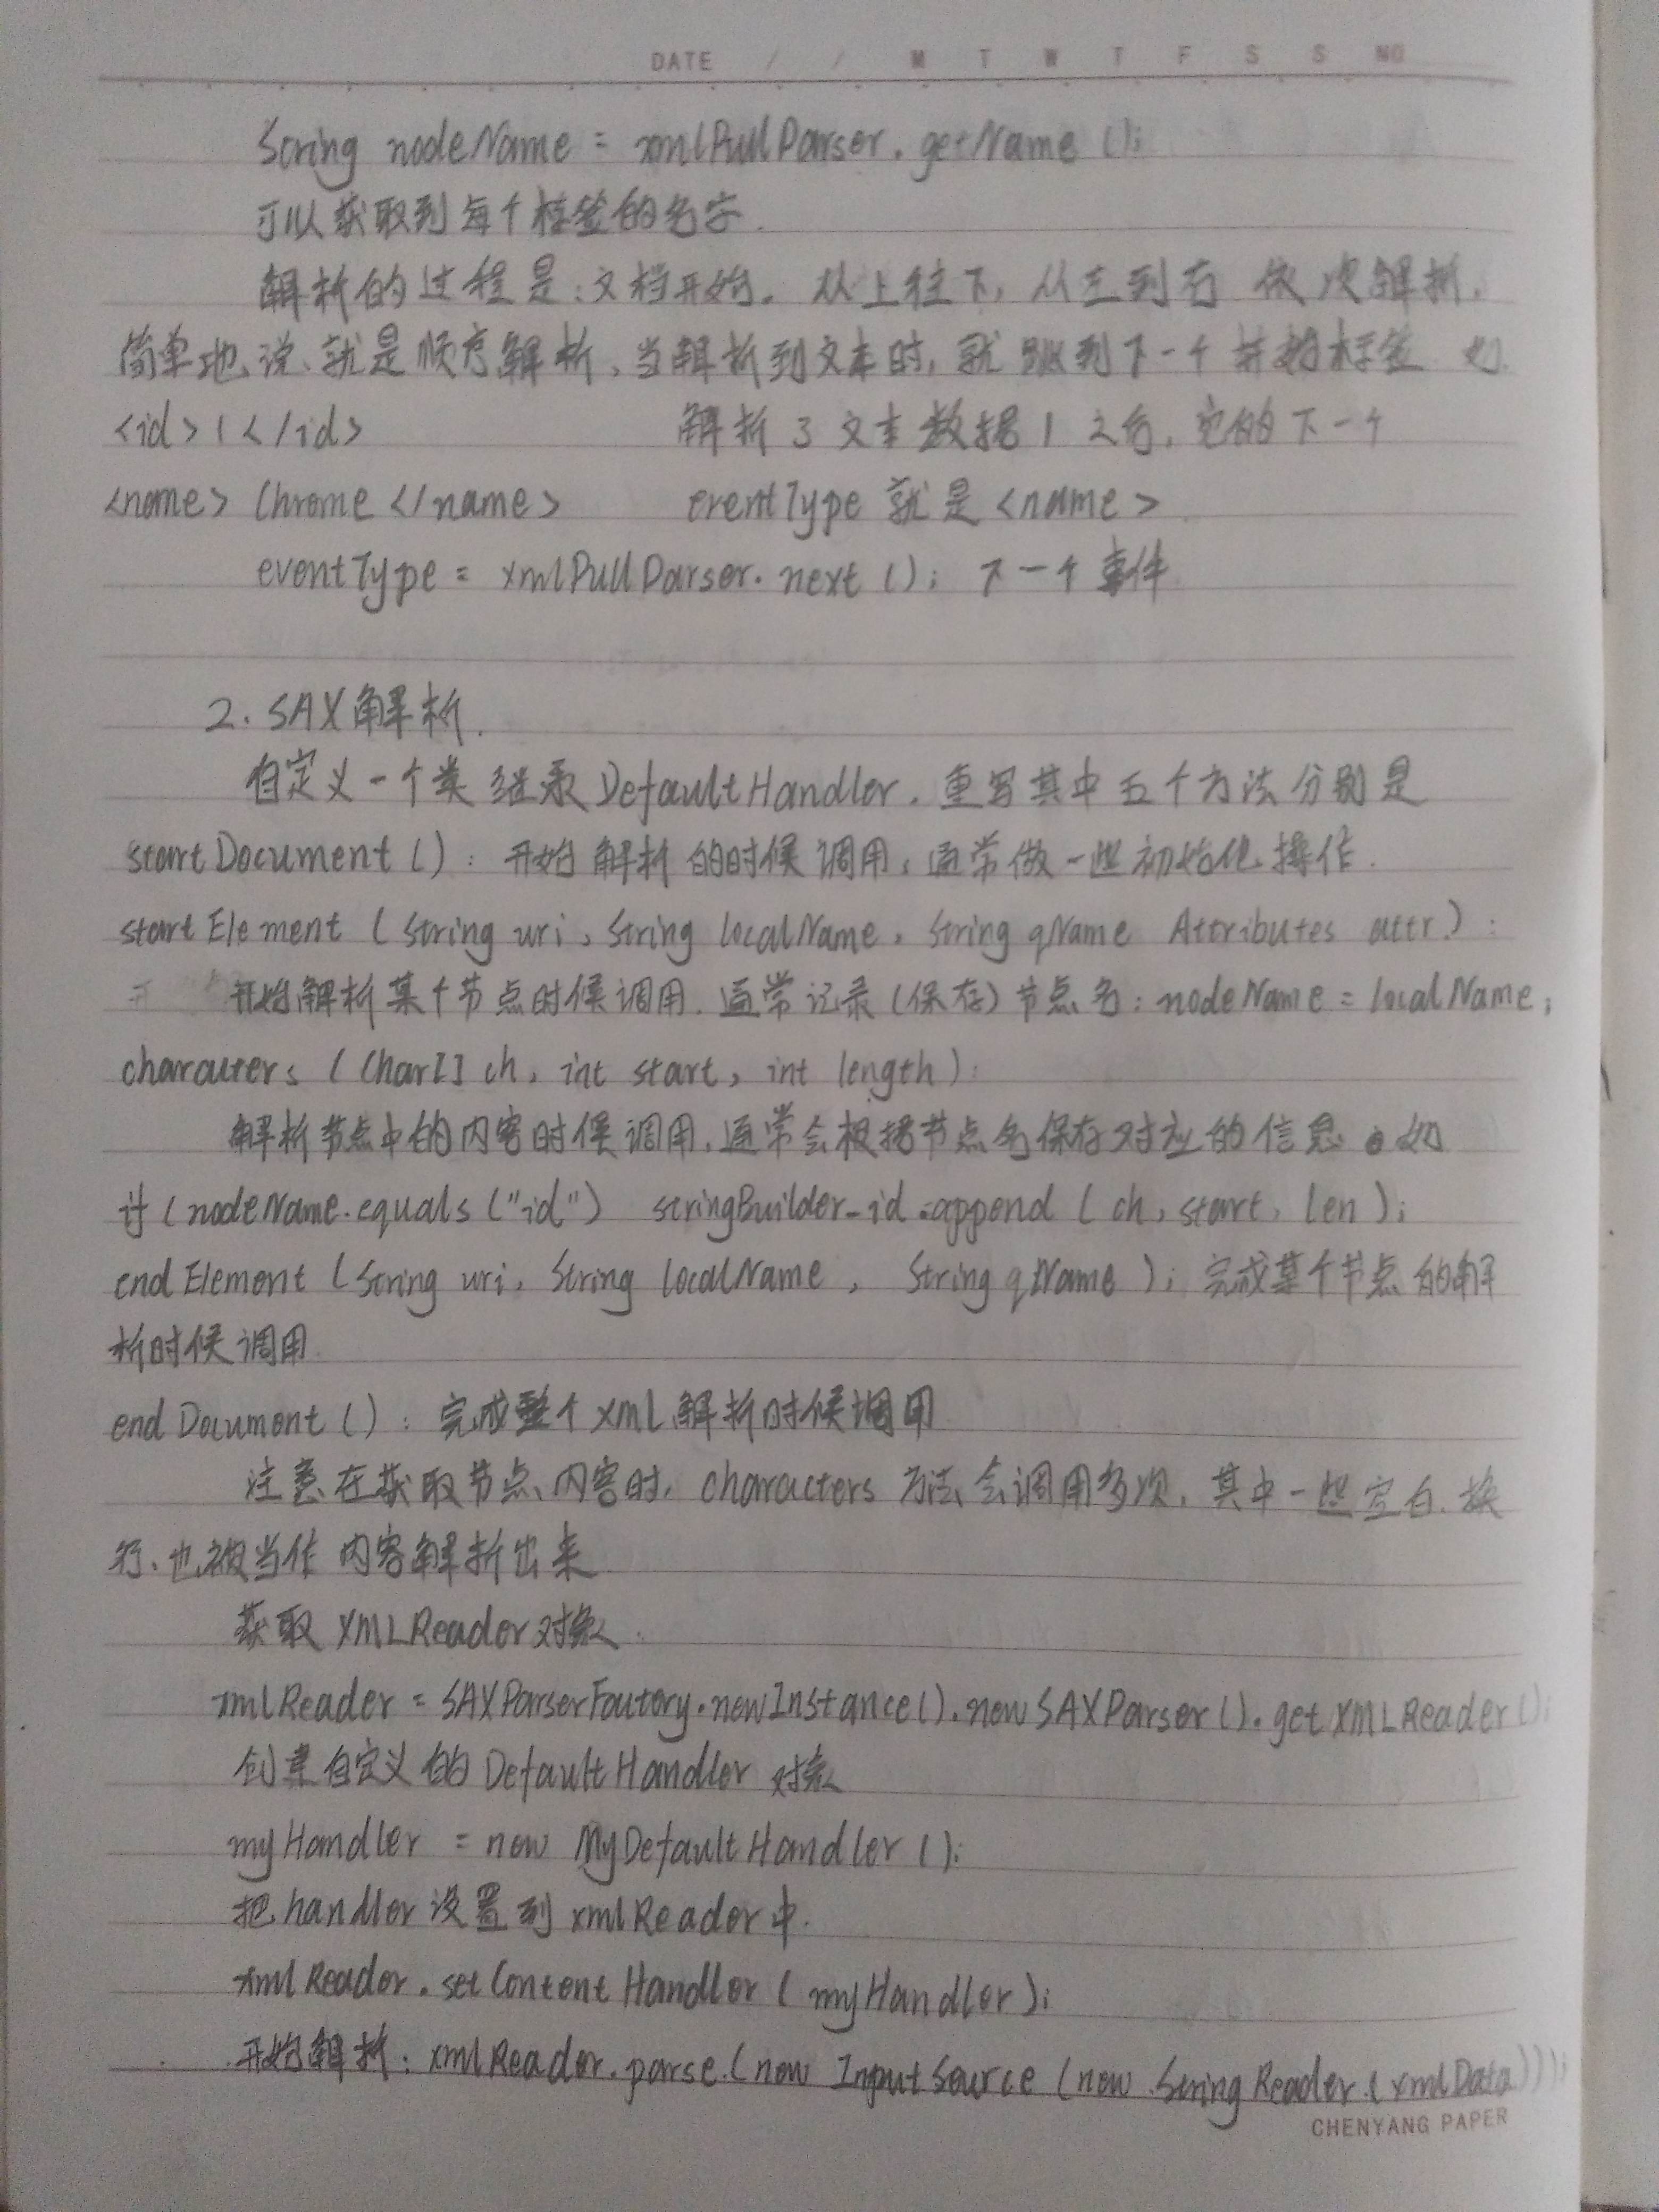 DATE / / M T W T F S S NO
String nodeName = xmlPullParser.getName();
可以获取到每个标签的名字.
解析的过程是:文档开始。从上往下,从左到右 依次解析.
简单地说、就是顺序解析、当解析到文本时,就跳到下一个开始标签 如
<id>1</id> 解析了文本数据1之后,它的下一个
<name>Chrome</name> eventType 就是<name>
eventType = xmlPullParser.next(); 下一个事件
2. SAX解析.
自定义一个类继承DefaultHandler.重写其中五个方法分别是
startDocument(): 开始解析的时候调用,通常做一些初始化操作.
startElement(String uri, String localName, String qName Attributes attr.):
开 开始解析某个节点时候调用.通常记录(保存)节点名:nodeName = localName;
characters (Char[] ch, int start, int length):
解析节点中的内容时候调用,通常会根据节点名保存对应的信息。如
if (nodeName.equals("id") stringBuilder_id.append(ch, start, len);
endElement (String uri, String localName, String qName); 完成某个节点的解
析时候调用
endDocument(): 完成整个XML解析时候调用
注意在获取节点内容时, characters 方法会调用多次,其中一些空白、换
行、也被当作内容解析出来
获取XMLReader对象.
xmlReader = SAXParserFactory.newInstance().newSAXParser().getXMLReader();
创建自定义的DefaultHandler对象
myHandler = new MyDefaultHandler();
把handler设置到xmlReader中.
xmlReader.setContentHandler(myHandler);
开始解析: xmlReader.parse.(new InputSource(new StringReader.(xmlData)));
CHENYANG PAPER